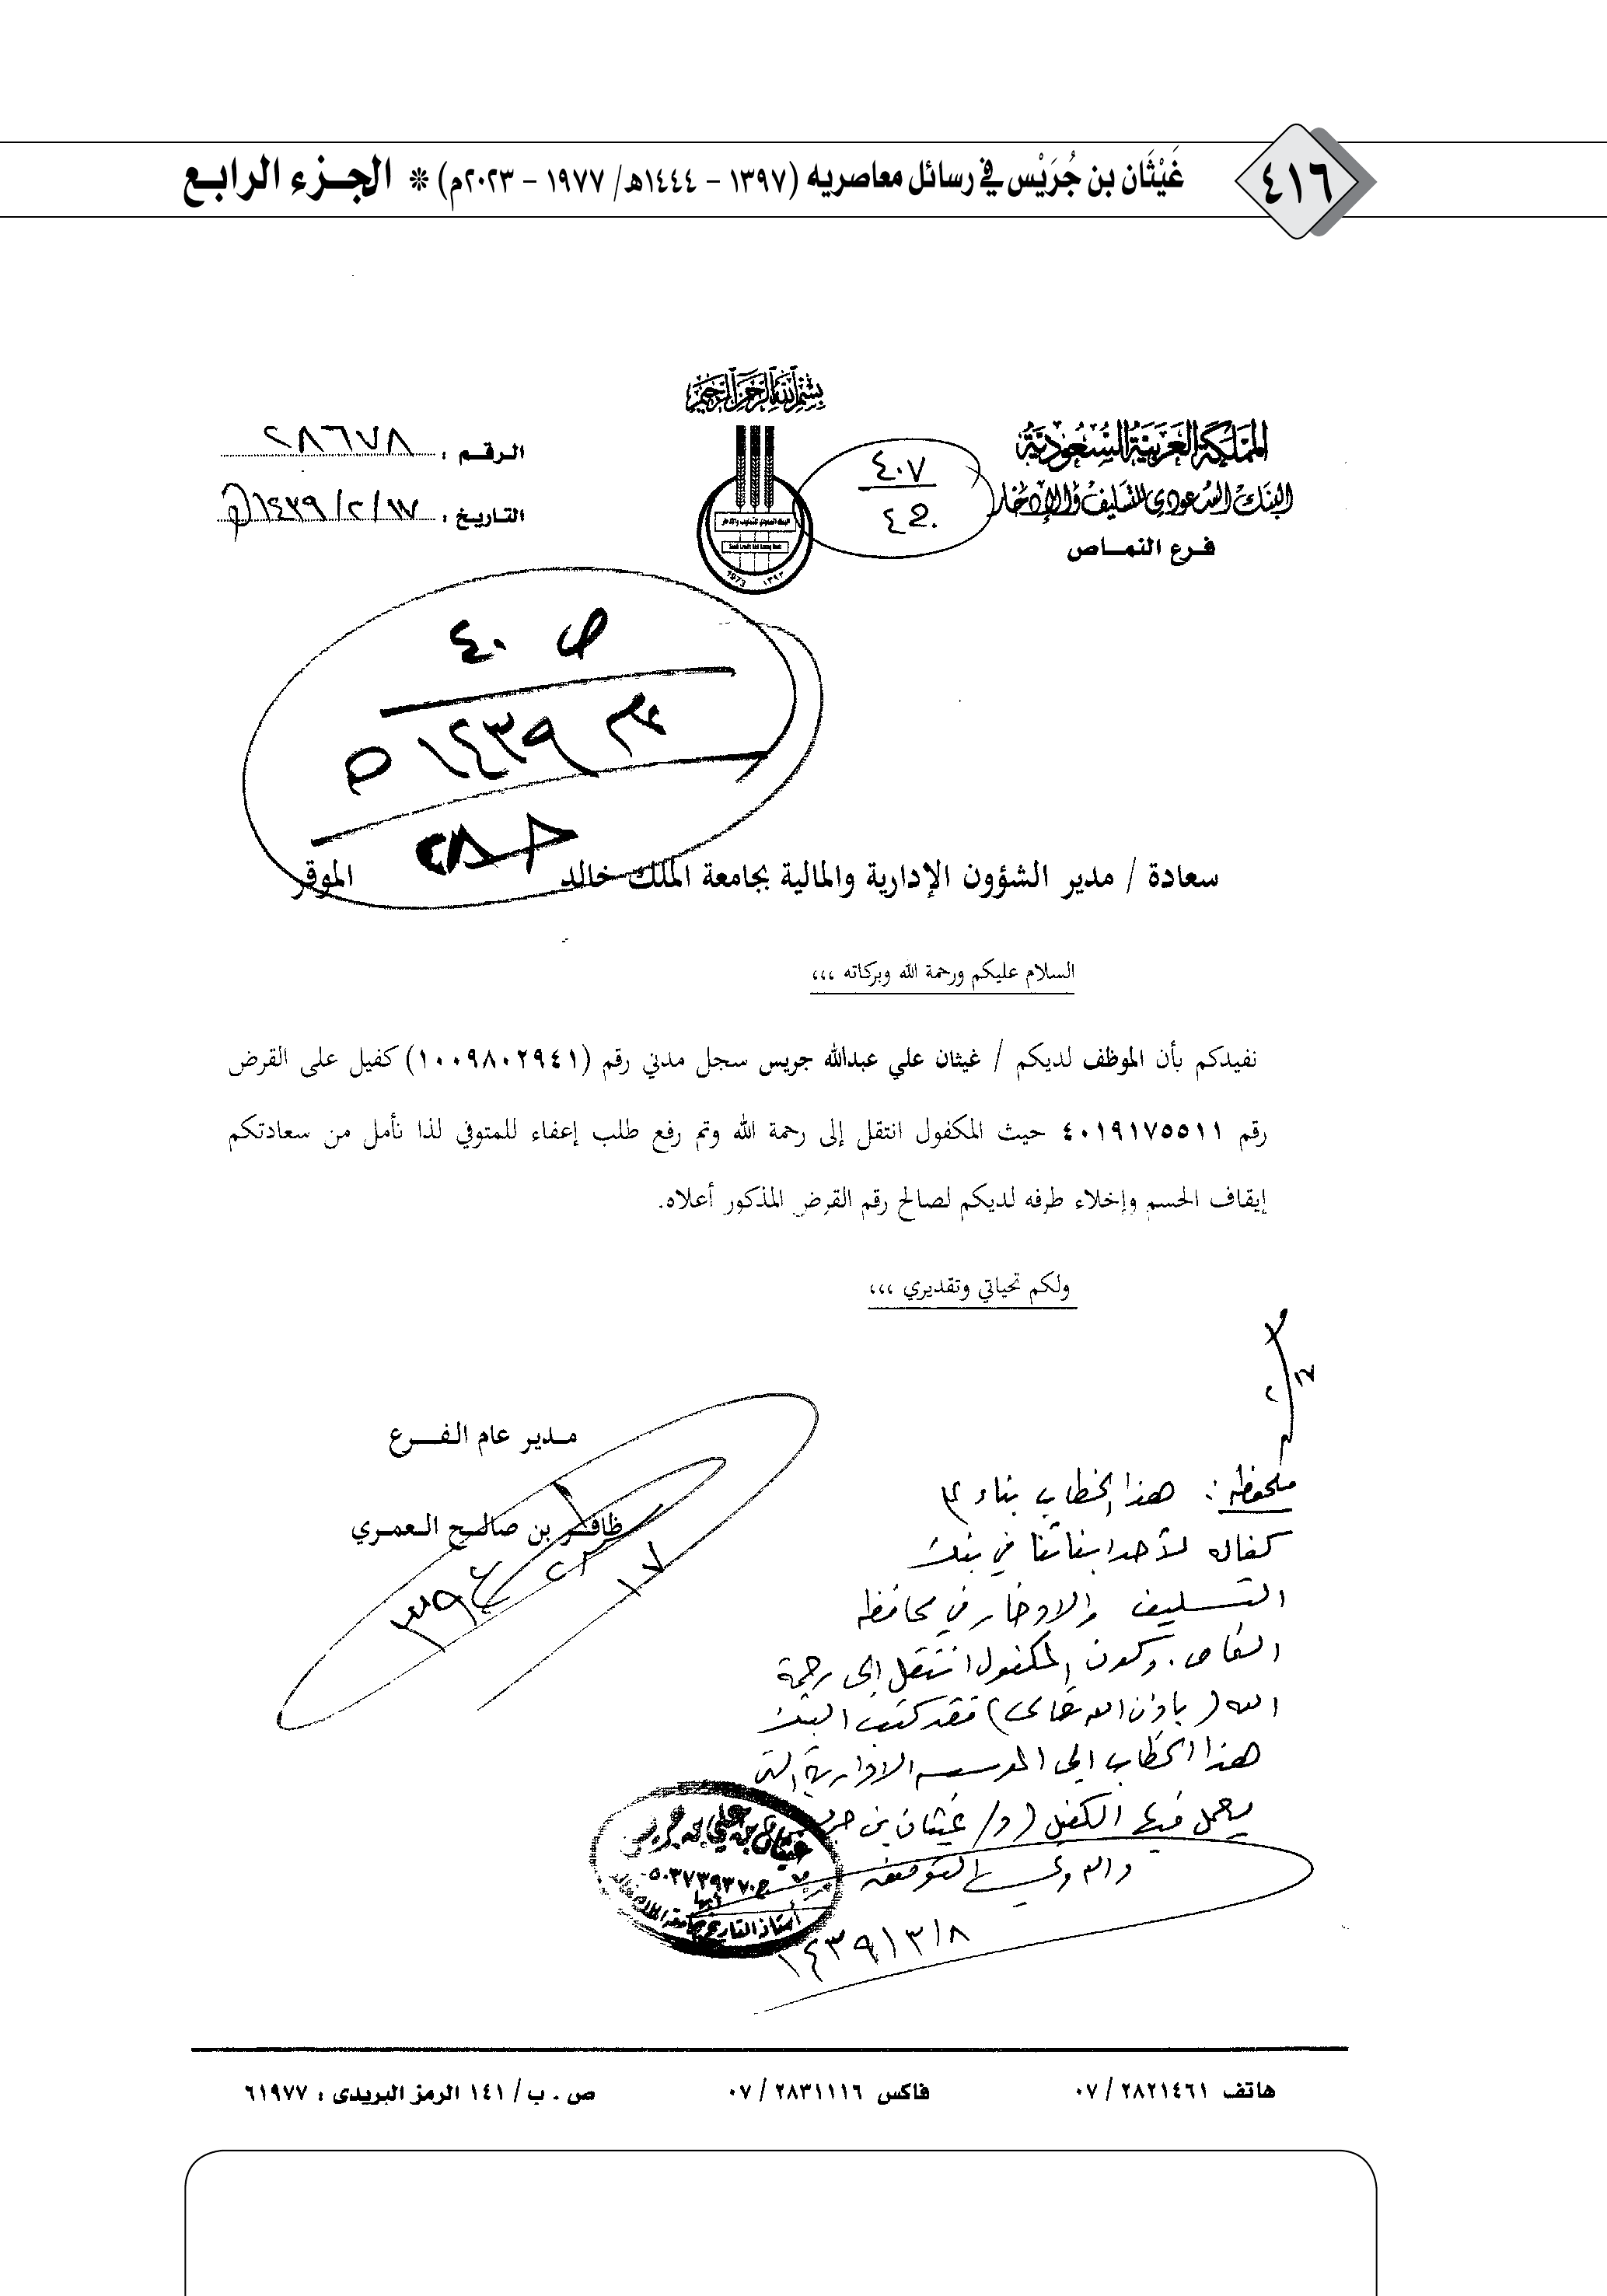 ٤١٦
غَيْثَان بن جُرَيْس في رسائل معاصريه (١٣٩٧ - ١٤٤٤هـ/ ١٩٧٧ - ٢٠٢٣م) * الجزء الرابع
بسم الله الرحمن الرحيم
المملكة العربية السعودية
البنك السعودي للتسليف والإدخار
فرع النماص
الرقم : ٢٨٦٧٨
التاريخ : ١٧/ ٢/ ١٤٣٩
٤٠٧
٤٢٠
1973 ١٣٩٣
ص ٤٠
١٤٣٩
سعادة / مدير الشؤون الإدارية والمالية بجامعة الملك خالد الموقر
السلام عليكم ورحمة الله وبركاته ،،،
نفيدكم بأن الموظف لديكم / غيثان علي عبدالله جريس سجل مدني رقم (١٠٠٩٨٠٢٩٤١) كفيل على القرض
رقم ٤٠١٩١٧٥٥١١ حيث المكفول انتقل إلى رحمة الله وتم رفع طلب إعفاء للمتوفي لذا نأمل من سعادتكم
إيقاف الحسم وإخلاء طرفه لديكم لصالح رقم القرض المذكور أعلاه.
ولكم تحياتي وتقديري ،،،
مدير عام الفرع
ظافر بن صالح العمري
ملحوظة : هذا الخطاب بناء
كفاله لأحد ابنائنا في بنك
التسليف والادخار في محافظة
النماص. وكون المكفول انتقل إلى رحمة
الله (بإذن الله تعالى) فقد كتب البنك
هذا الخطاب إلى المؤسسة الادارية التي
يعمل فيها الكفيل (د/ غيثان بن جريس
والله ولي التوفيق
١٤٣٩/٣/٨
غيثان بن علي بن جريس
ج ٠٥٠٣٧٣٩٣٧٠
أبها
أستاذ التاريخ بجامعة الملك خالد
هاتف ٢٨٢١٤٦١ / ٠٧ فاكس ٢٨٣١١١٦ / ٠٧ ص . ب / ١٤١ الرمز البريدى : ٦١٩٧٧